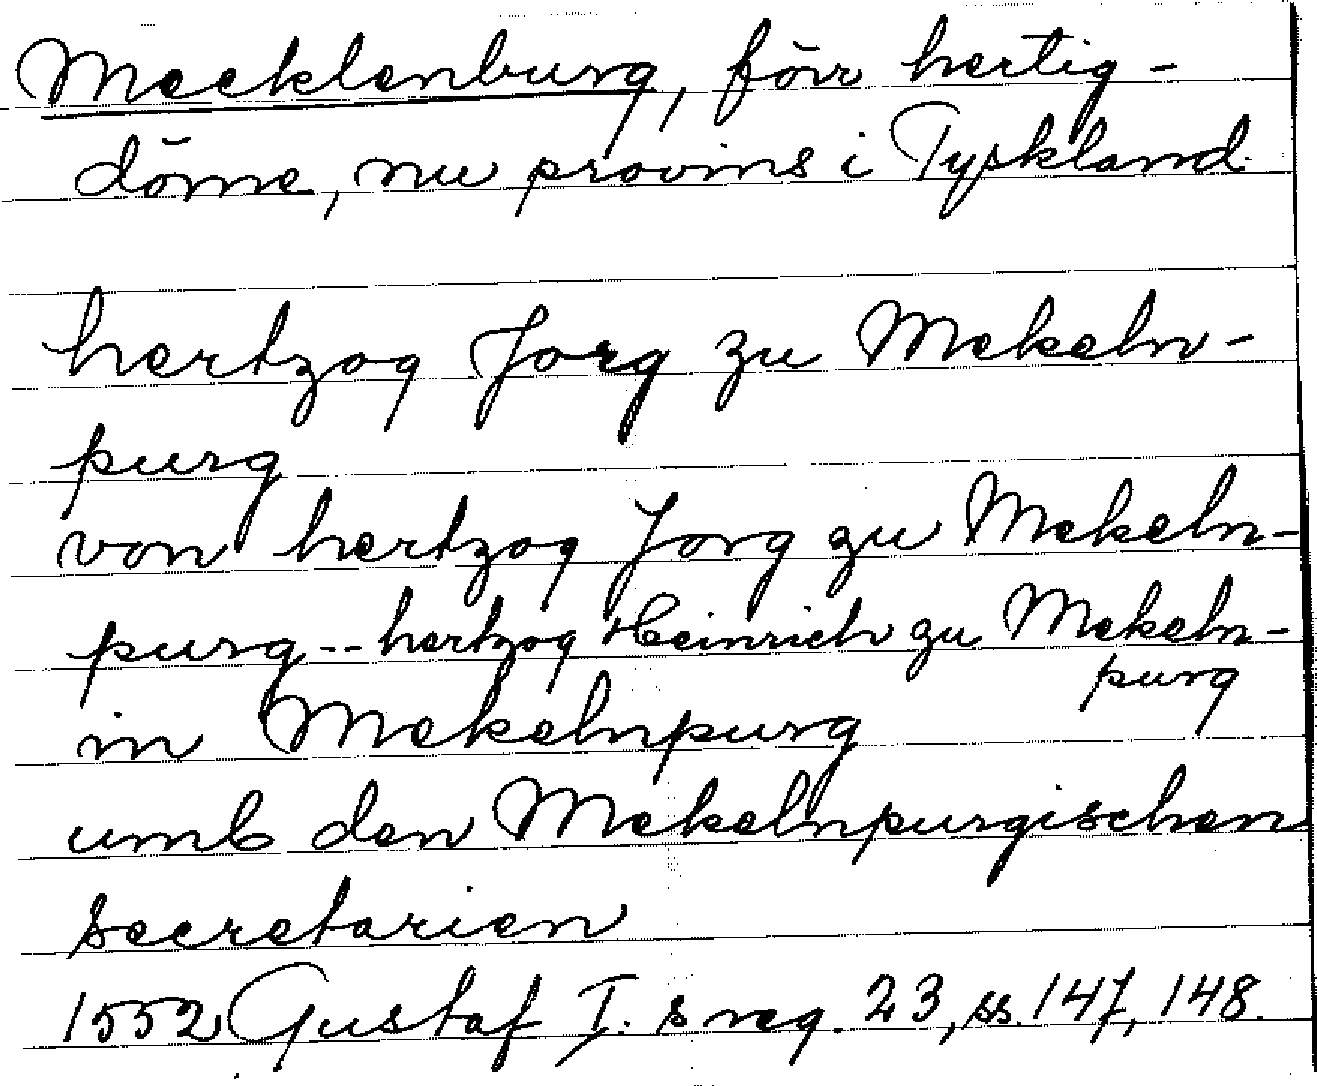 Mecklenburg, förr hertig-
döme, nu provins i Tyskland
hertzog Jorg zu Mekeln-
purg
von hertzog Jorg zu Mekeln-
purg -- hertzog Heinrich zu Mekeln-
purg
in Mekelnpurg
umb den Mekelnpurgischen
secretarien
1552 Gustaf I:s reg. 23, ss. 147, 148.